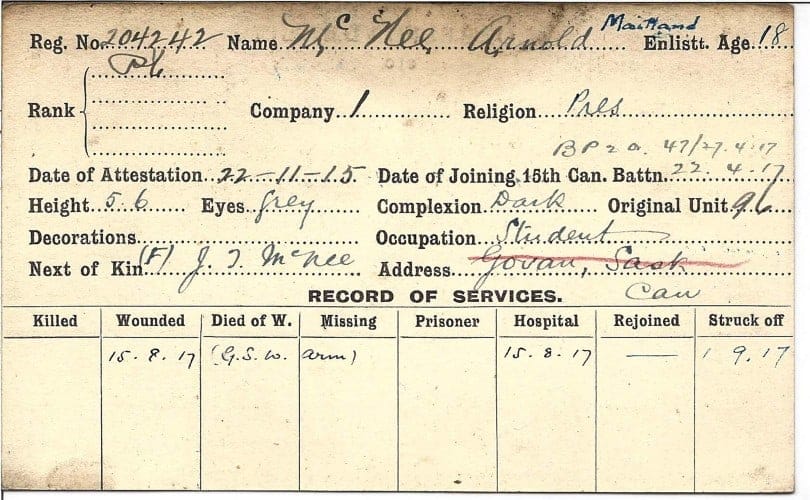 Reg. No. 204242 Name Mc Nee Arnold Maitland Enlistt. Age 18
Rank Pte Company 1 Religion Pres
BP 2 a. 47/27.4.17
Date of Attestation 22-11-15 Date of Joining 15th Can. Battn. 22.4.17
Height 5.6 Eyes Grey Complexion Dark Original Unit 96
Decorations Occupation Student
Next of Kin (F) J. T McNee Address Govan, Sask
Can
RECORD OF SERVICES.
Killed Wounded Died of W. Missing Prisoner Hospital Rejoined Struck off
15.8.17 (G.S.W. arm) 15.8.17 — 1 9.17